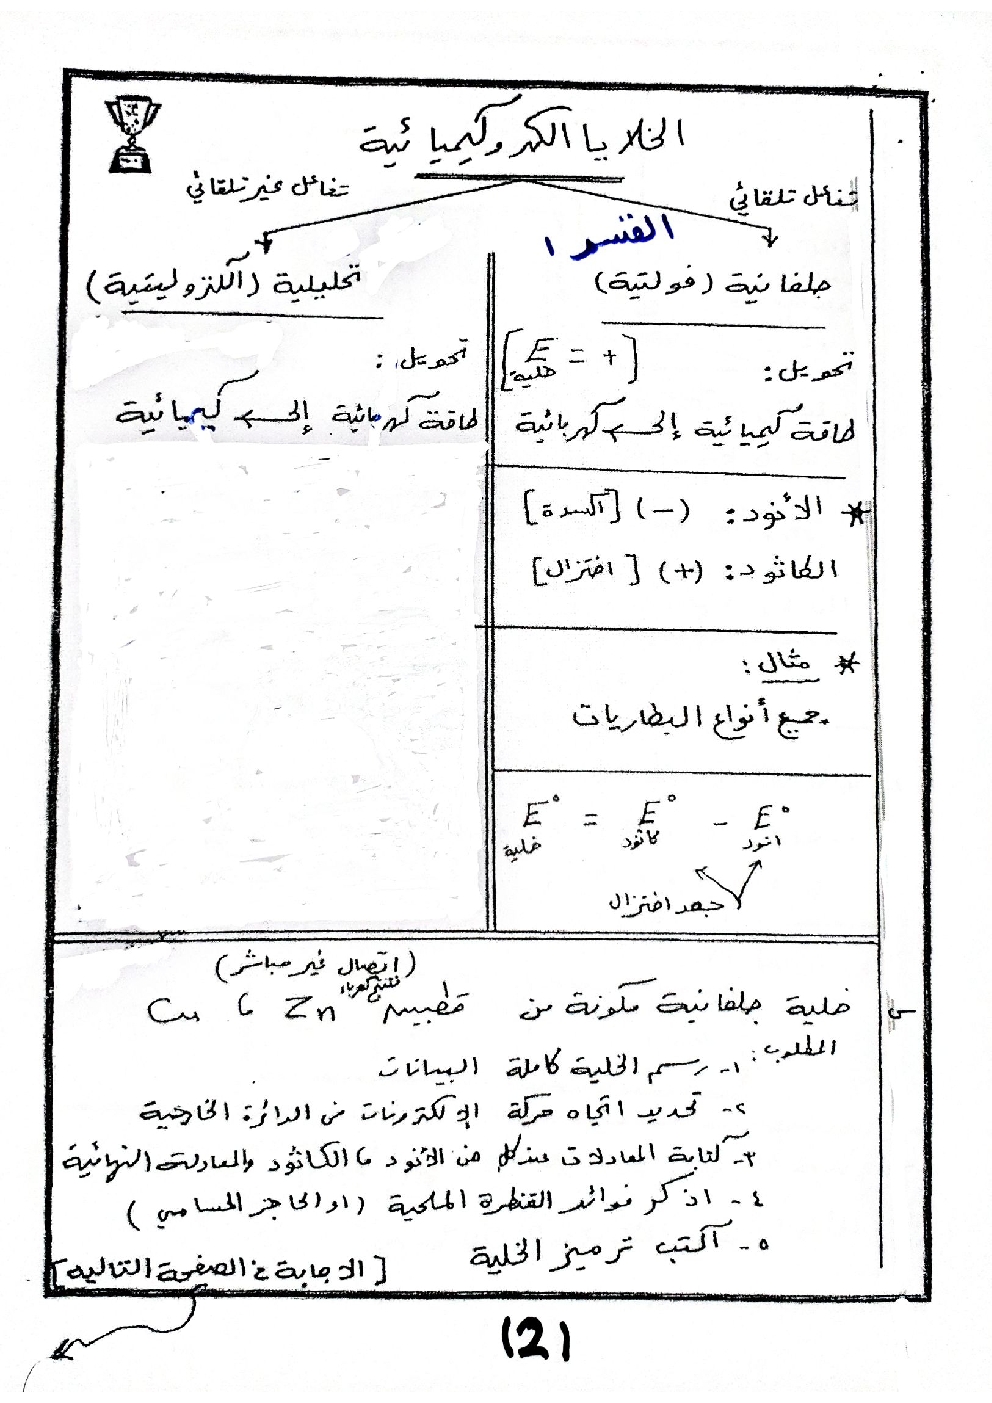 الخلايا الكهروكيميائية
تفاعل تلقائي
تفاعل غير تلقائي
جلفانية (فولتية)
تحويل: [E خلية = +]
طاقة كيميائية إلى كهربائية
* الأنود: (-) [أكسدة]
الكاثود: (+) [اختزال]
* مثال:
جميع أنواع البطاريات
E° خلية = E° كاثود - E° انود
جهد اختزال
تحليلية (الكتروليتية)
تحويل:
طاقة كهربائية إلى كيميائية
(اتصال غير مباشر)
س خلية جلفانية مكونة من قطبين Zn ، Cu
المطلوب:
١- رسم الخلية كاملة البيانات
٢- تحديد اتجاه حركة الإلكترونات في الدائرة الخارجية
٣- كتابة المعادلات عند كل من الأنود ، الكاثود والمعادلة النهائية
٤- اذكر فوائد القنطرة الملحية (او الحاجز المسامي)
٥- أكتب ترميز الخلية
[الاجابة في الصفحة التالية]
(2)